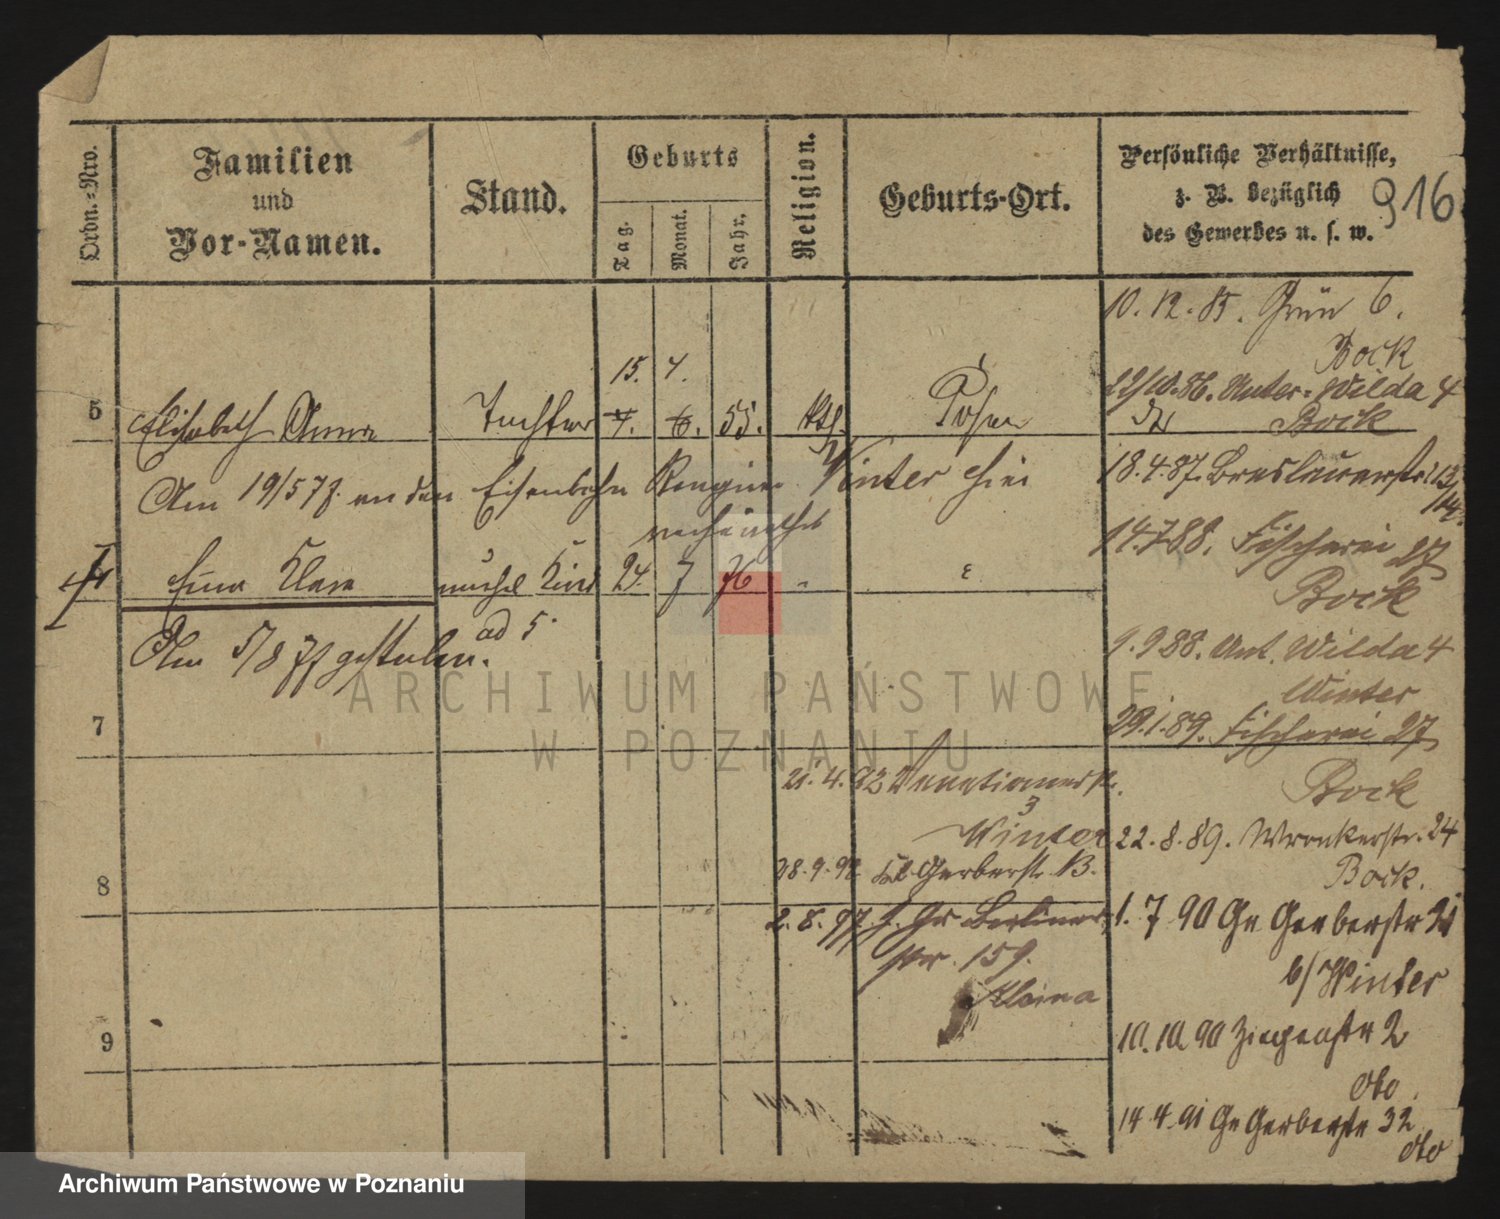 Ordn.-Nro.
Familien
und
Vor-Namen.
Stand.
Geburts
Tag.
Monat.
Jahr.
Religion.
Geburts-Ort.
Persönliche Verhältnisse,
z. B. bezüglich
des Gewerbes u. s. w.
916
10. 12. 85. Grün 6.
Bock
22/10. 86. Unter-Wilda 4
Bock
15. 4.
5 Elisabeth Anna Tochter 4. 6. 55. kth. Posen
Am 19/5 77 an den Eisenbahn Winter hier
verheirathet
18. 4. 87. Breslauerstr. 13/14.
14. 7 88. Fischerei 27
Bock
Klara unehel Kind 24. 7 76 "
ad 5
Am 5/8 77 gestorben.
9. 9 88. Unt. Wilda 4
Winter
29. 1. 89. Fischerei 27
Bock
7
21. 4. 92
3
Winter
22. 8. 89. Wronkerstr. 24
Bock.
8
28. 9. 92 Kl. Gerberstr. 13.
2. 8. 97 Gr Berliner
str. 159.
1. 7 90 Gr Gerberstr 21
b/ Winter
9
10. 10. 90 Ziegenstr 2
dto
14 4. 91 Gr Gerberstr 32
dto
ARCHIWUM PAŃSTWOWE
W POZNANIU
Archiwum Państwowe w Poznaniu